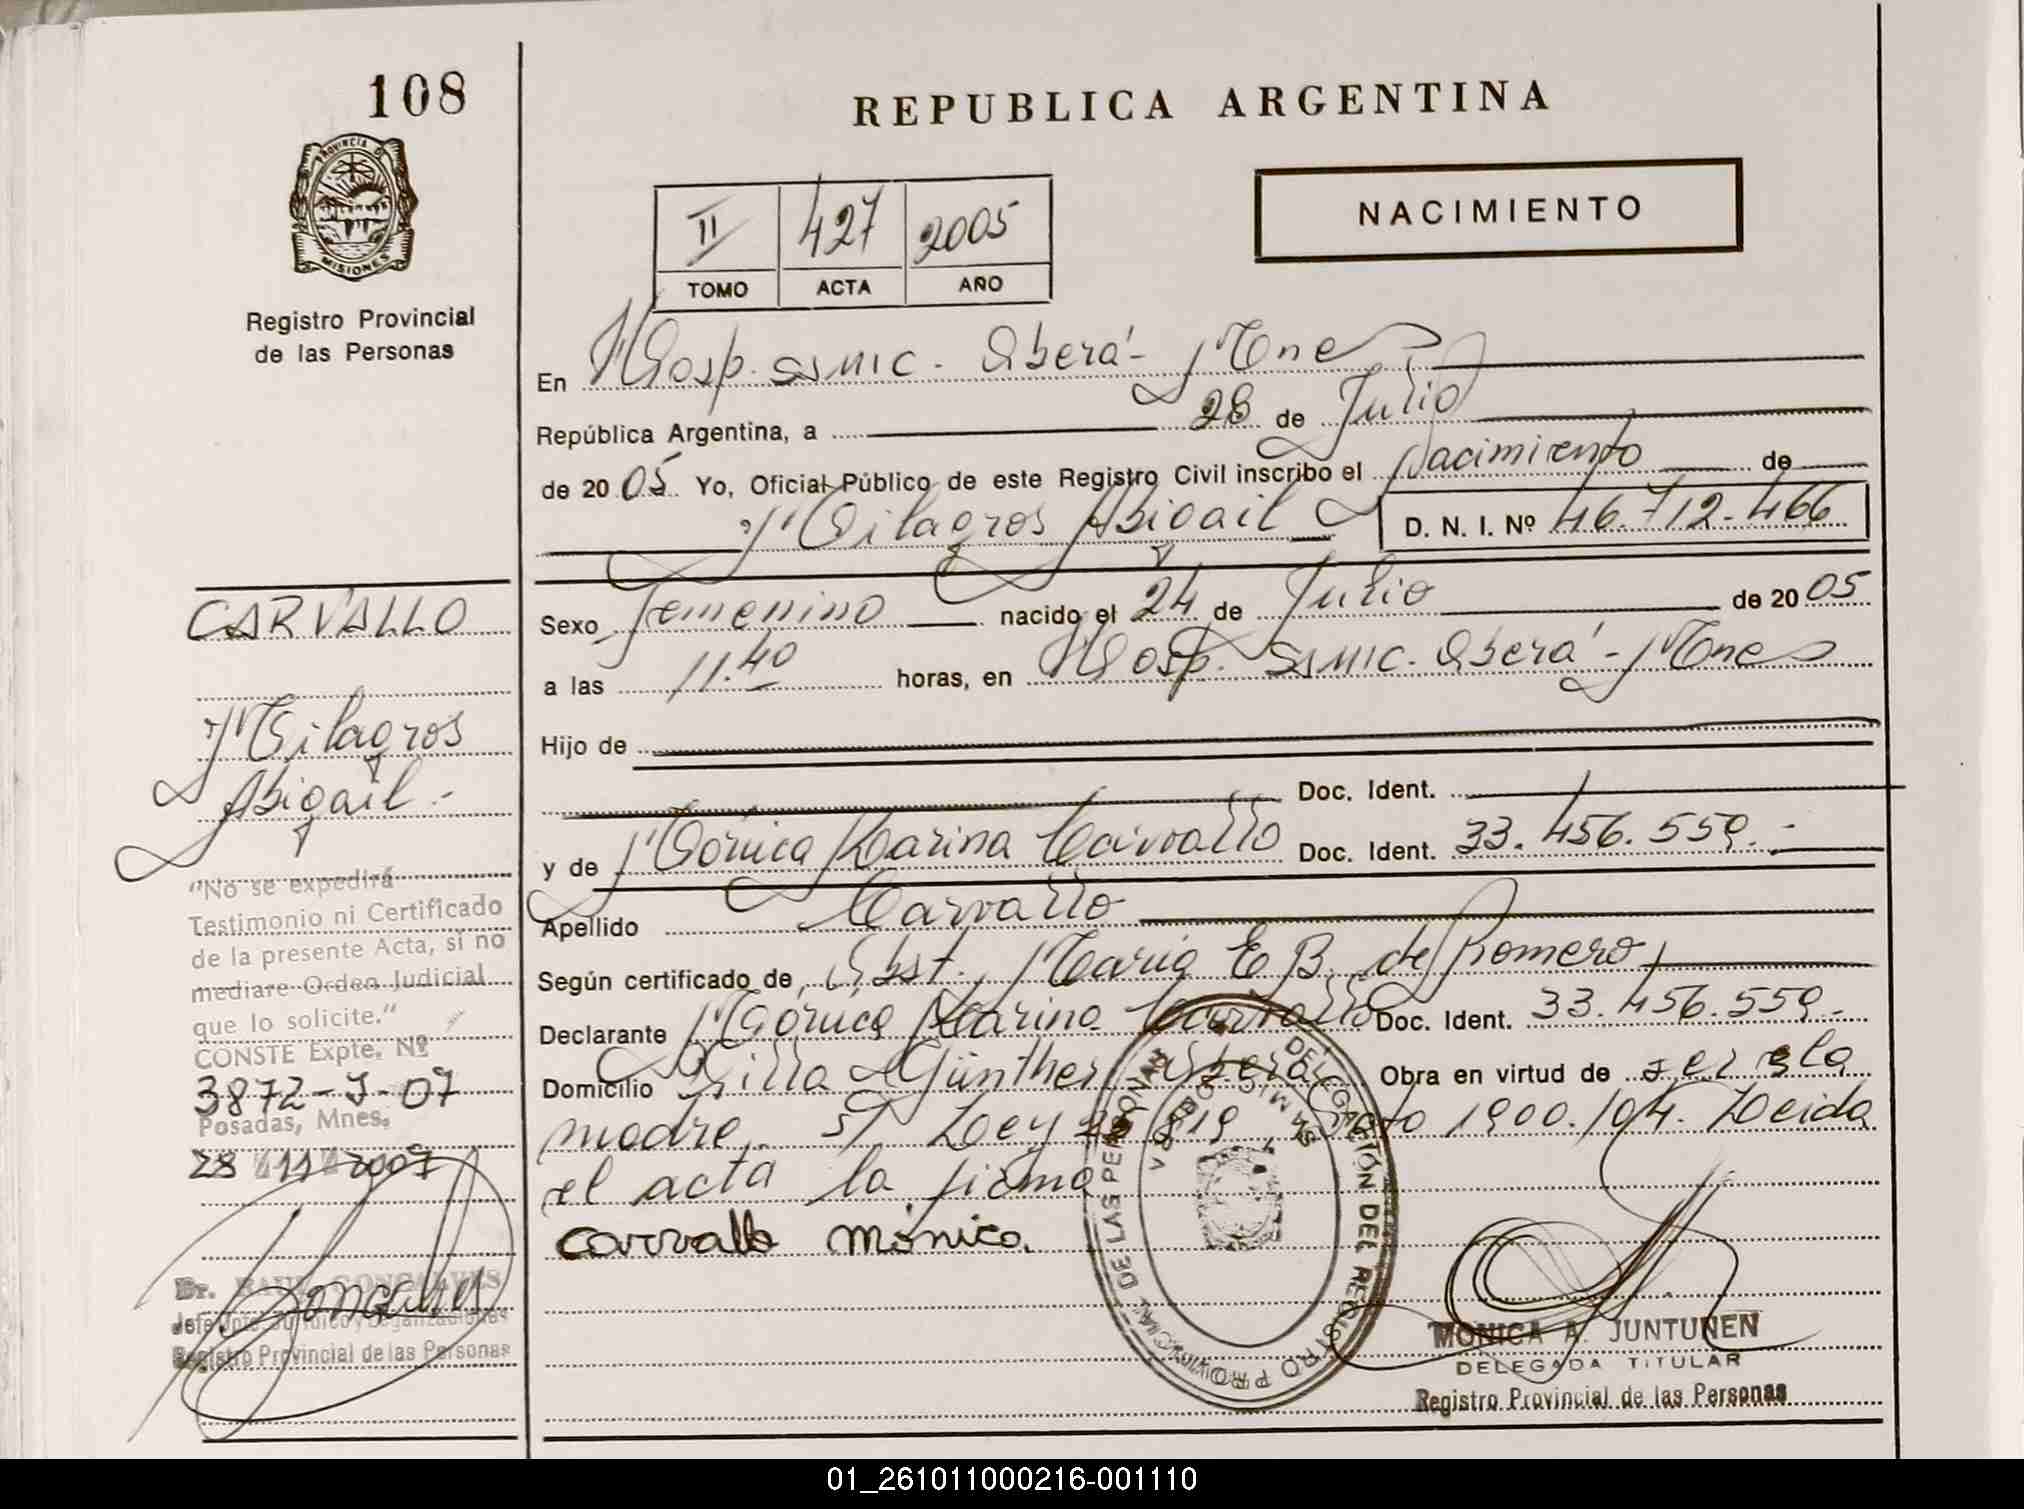 108
PROVINCIA DE
MISIONES
Registro Provincial
de las Personas
REPUBLICA ARGENTINA
II 427 2005
TOMO ACTA AÑO
NACIMIENTO
En Hosp. SSMIC. Oberá - Mnes
República Argentina, a 28 de Julio
de 2005 Yo, Oficial Público de este Registro Civil inscribo el Nacimiento de
Milagros Abigail D. N. I. Nº 46.712.466
Sexo Femenino nacido el 24 de Julio de 2005
a las 11.40 horas, en Hosp. SSMIC. Oberá - Mnes
Hijo de
Doc. Ident.
y de Mónica Karina Carvallo Doc. Ident. 33.456.559.-
Apellido Carvallo
Según certificado de Obst. María E B. de Romero
Declarante Mónica Karina Carvallo Doc. Ident. 33.456.559.-
Domicilio Villa Günther Oberá Obra en virtud de ser la
madre. S/ Ley 25819 Dcto 1900/04. Leida
el acta la firma
Carvallo Mónica.
CARVALLO
Milagros
Abigail.-
"No se expedirá
Testimonio ni Certificado
de la presente Acta, si no
mediare Orden Judicial
que lo solicite."
CONSTE Expte. Nº
3872-J-07
Posadas, Mnes.
28 11 2007
Dr. RAUL GONCALVES
Jefe Dpto. Jurídico y
Registro Provincial de las Personas
DELEGACIÓN DEL REGISTRO PROVINCIAL DE LAS PERSONAS
OBERA MISIONES
MONICA A. JUNTUNEN
DELEGADA TITULAR
Registro Provincial de las Personas
01_261011000216-001110